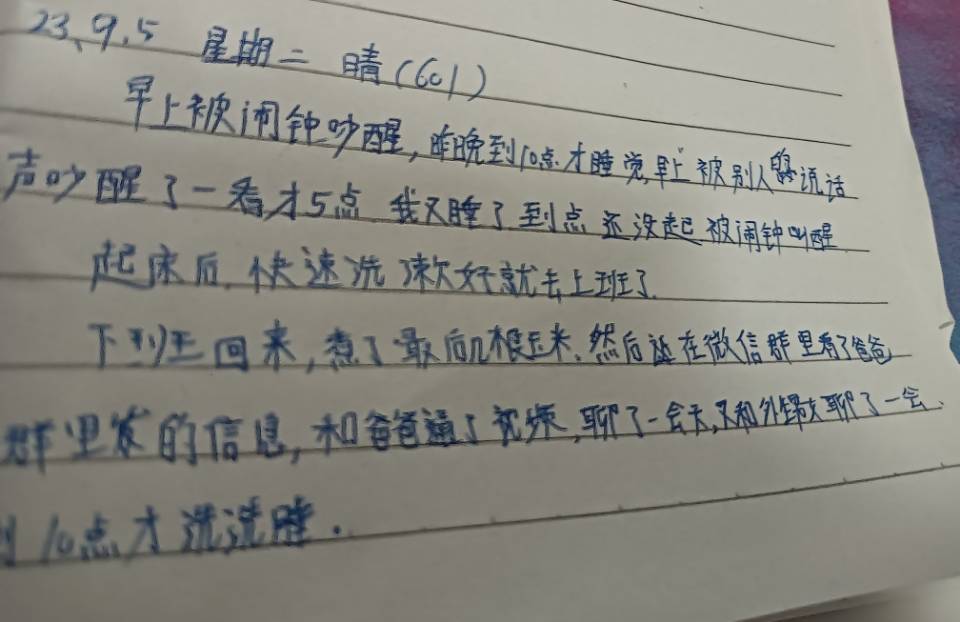 23.9.5 星期二 晴(601)
早上被闹钟吵醒,昨晚到10点才睡觉早上被别人说话
声吵醒了一看才5点 我又睡了到点还没起被闹钟叫醒
起床后,快速洗漱好就去上班了.
下班回来,煮了最后几根玉米.然后在微信群里看了爸爸
群里发的信息,和爸爸通了视频,聊了一会天,又和外甥女聊了一会.
到10点才洗洗睡.